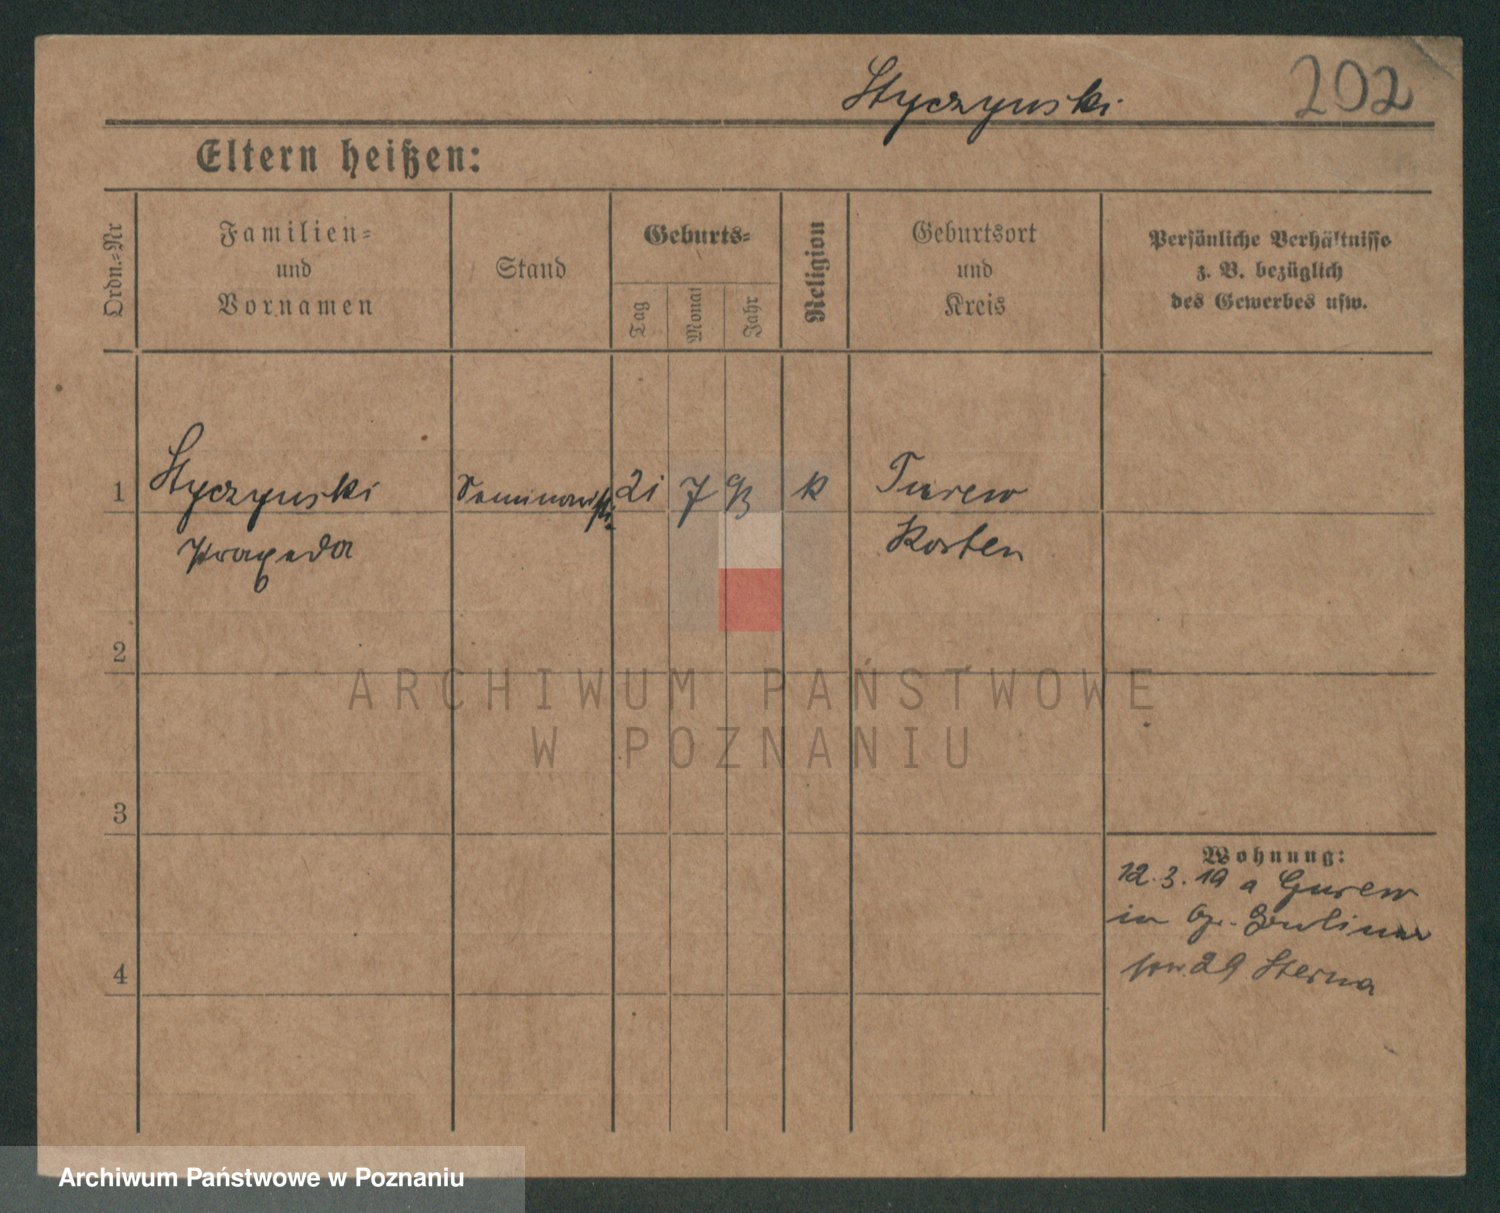 Styczynski
202
Eltern heißen:
Ordn.-Nr
Familien-
und
Vornamen
Stand
Geburts-
Tag
Monat
Jahr
Religion
Geburtsort
und
Kreis
Persönliche Verhältnisse
z. B. bezüglich
des Gewerbes usw.
1
Styczynski
Praxeda
Seminaristi
21
7
93
k
Turew
Kosten
2
ARCHIWUM PAŃSTWOWE
W POZNANIU
3
Wohnung:
12.3.19 a Gurew
in
29 Sterna
4
Archiwum Państwowe w Poznaniu